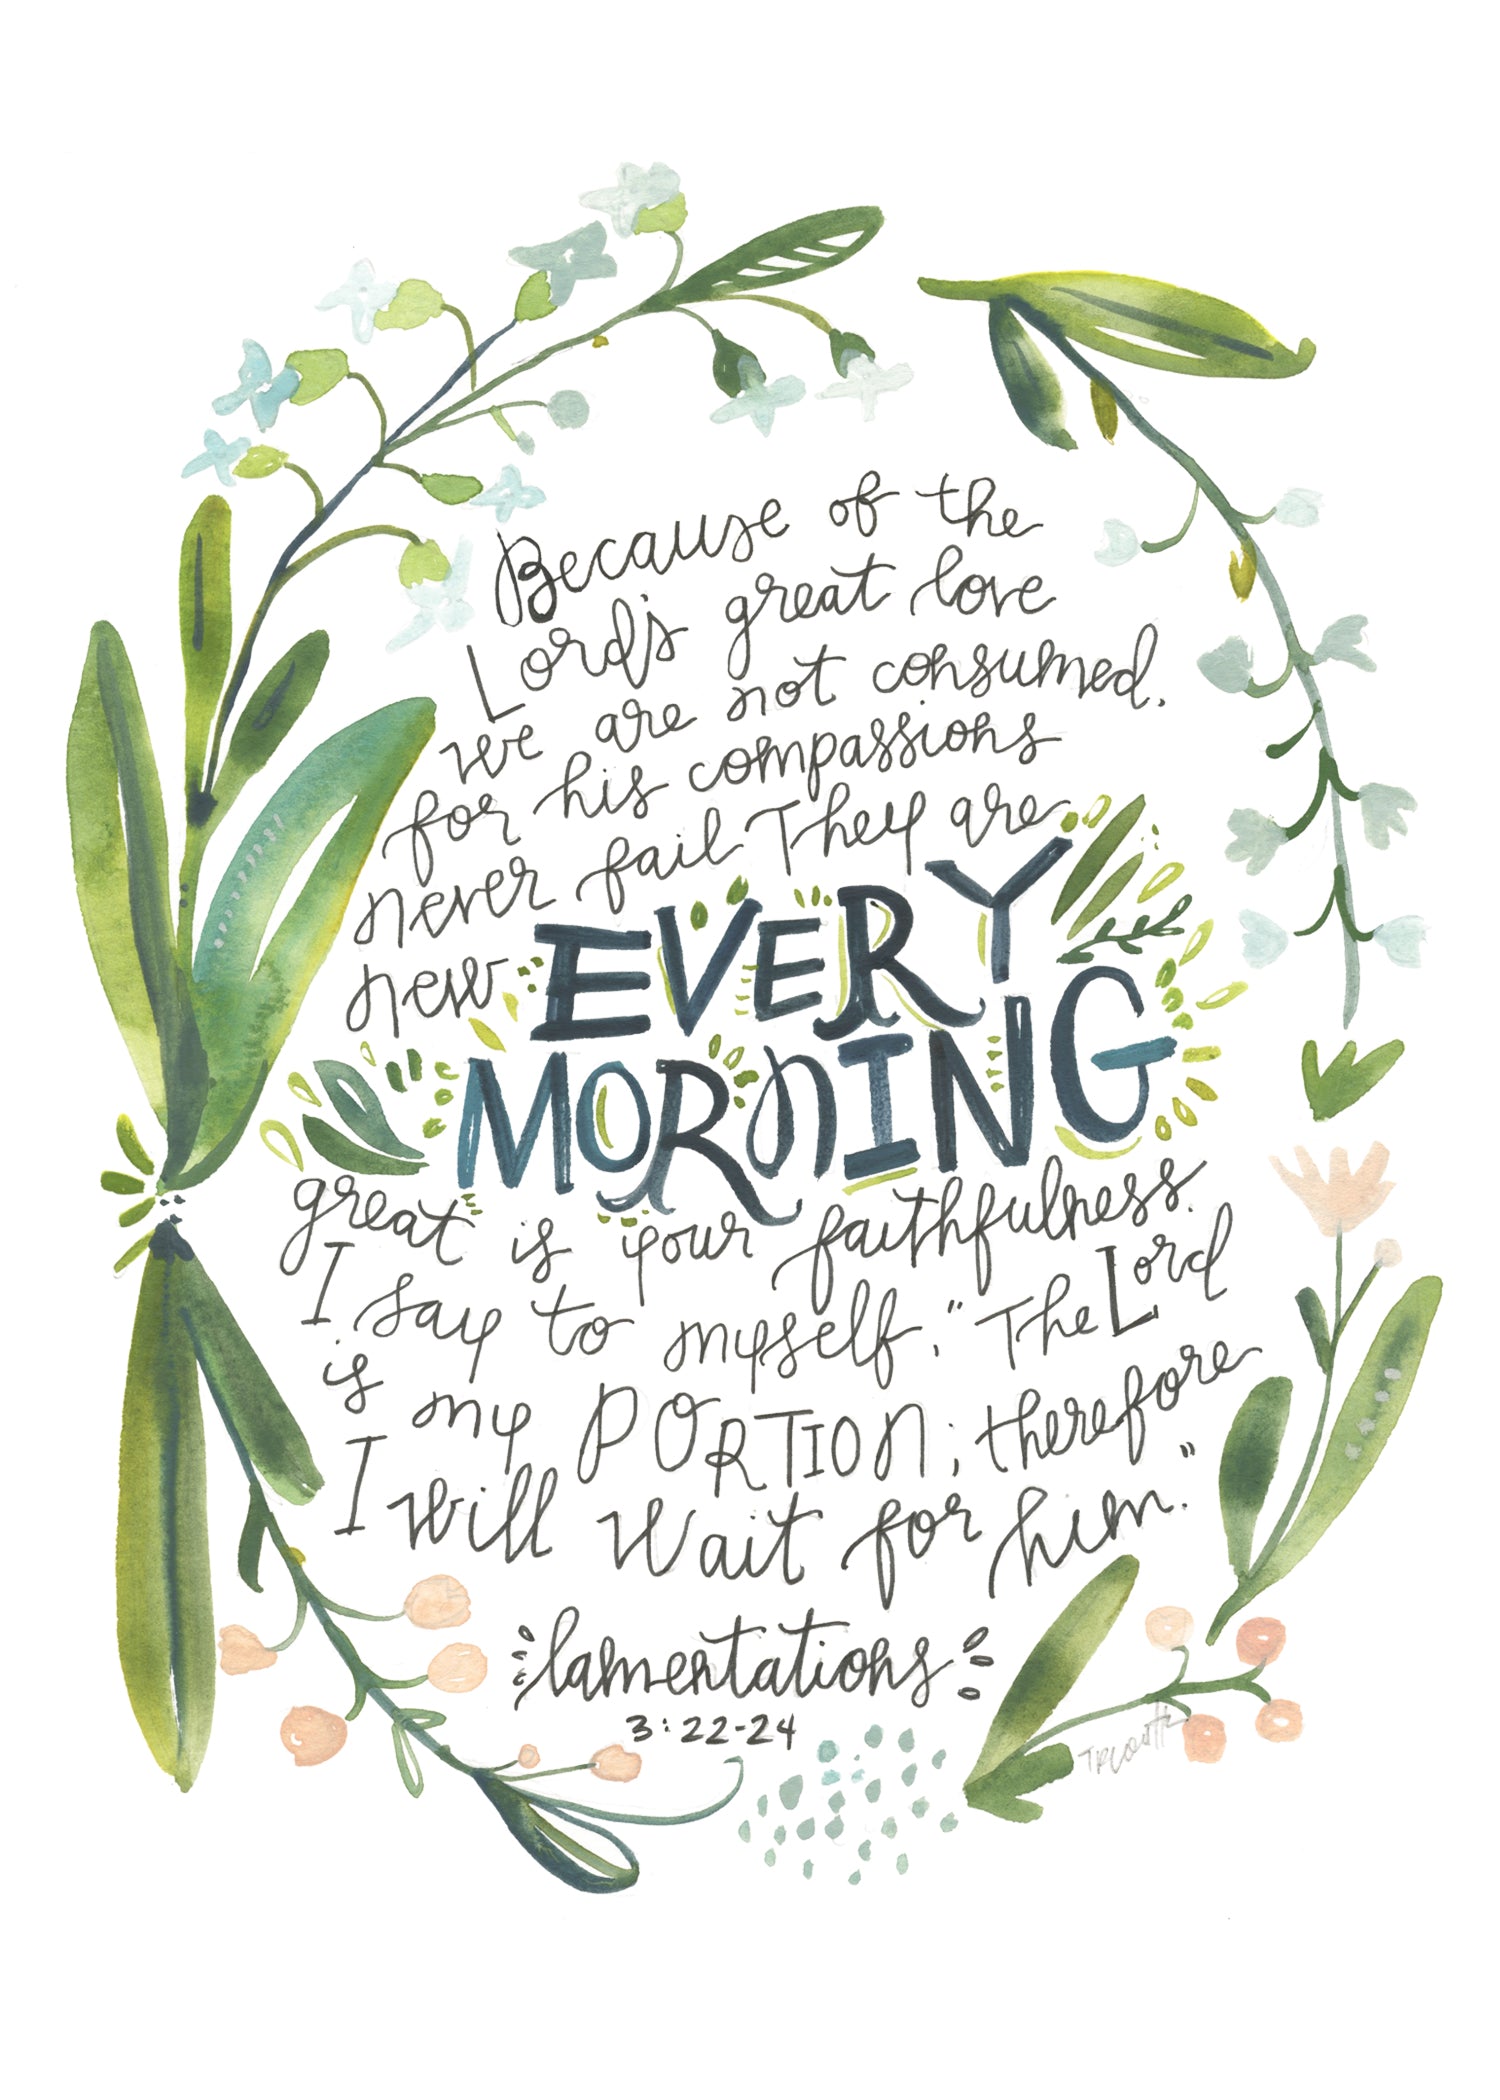 Because of the
Lord's great love
we are not consumed,
for his compassions
never fail. They are
new EVERY
MORNING
great is your faithfulness.
I say to myself, "The Lord
is my PORTION; therefore
I will wait for him."
lamentations
3:22-24